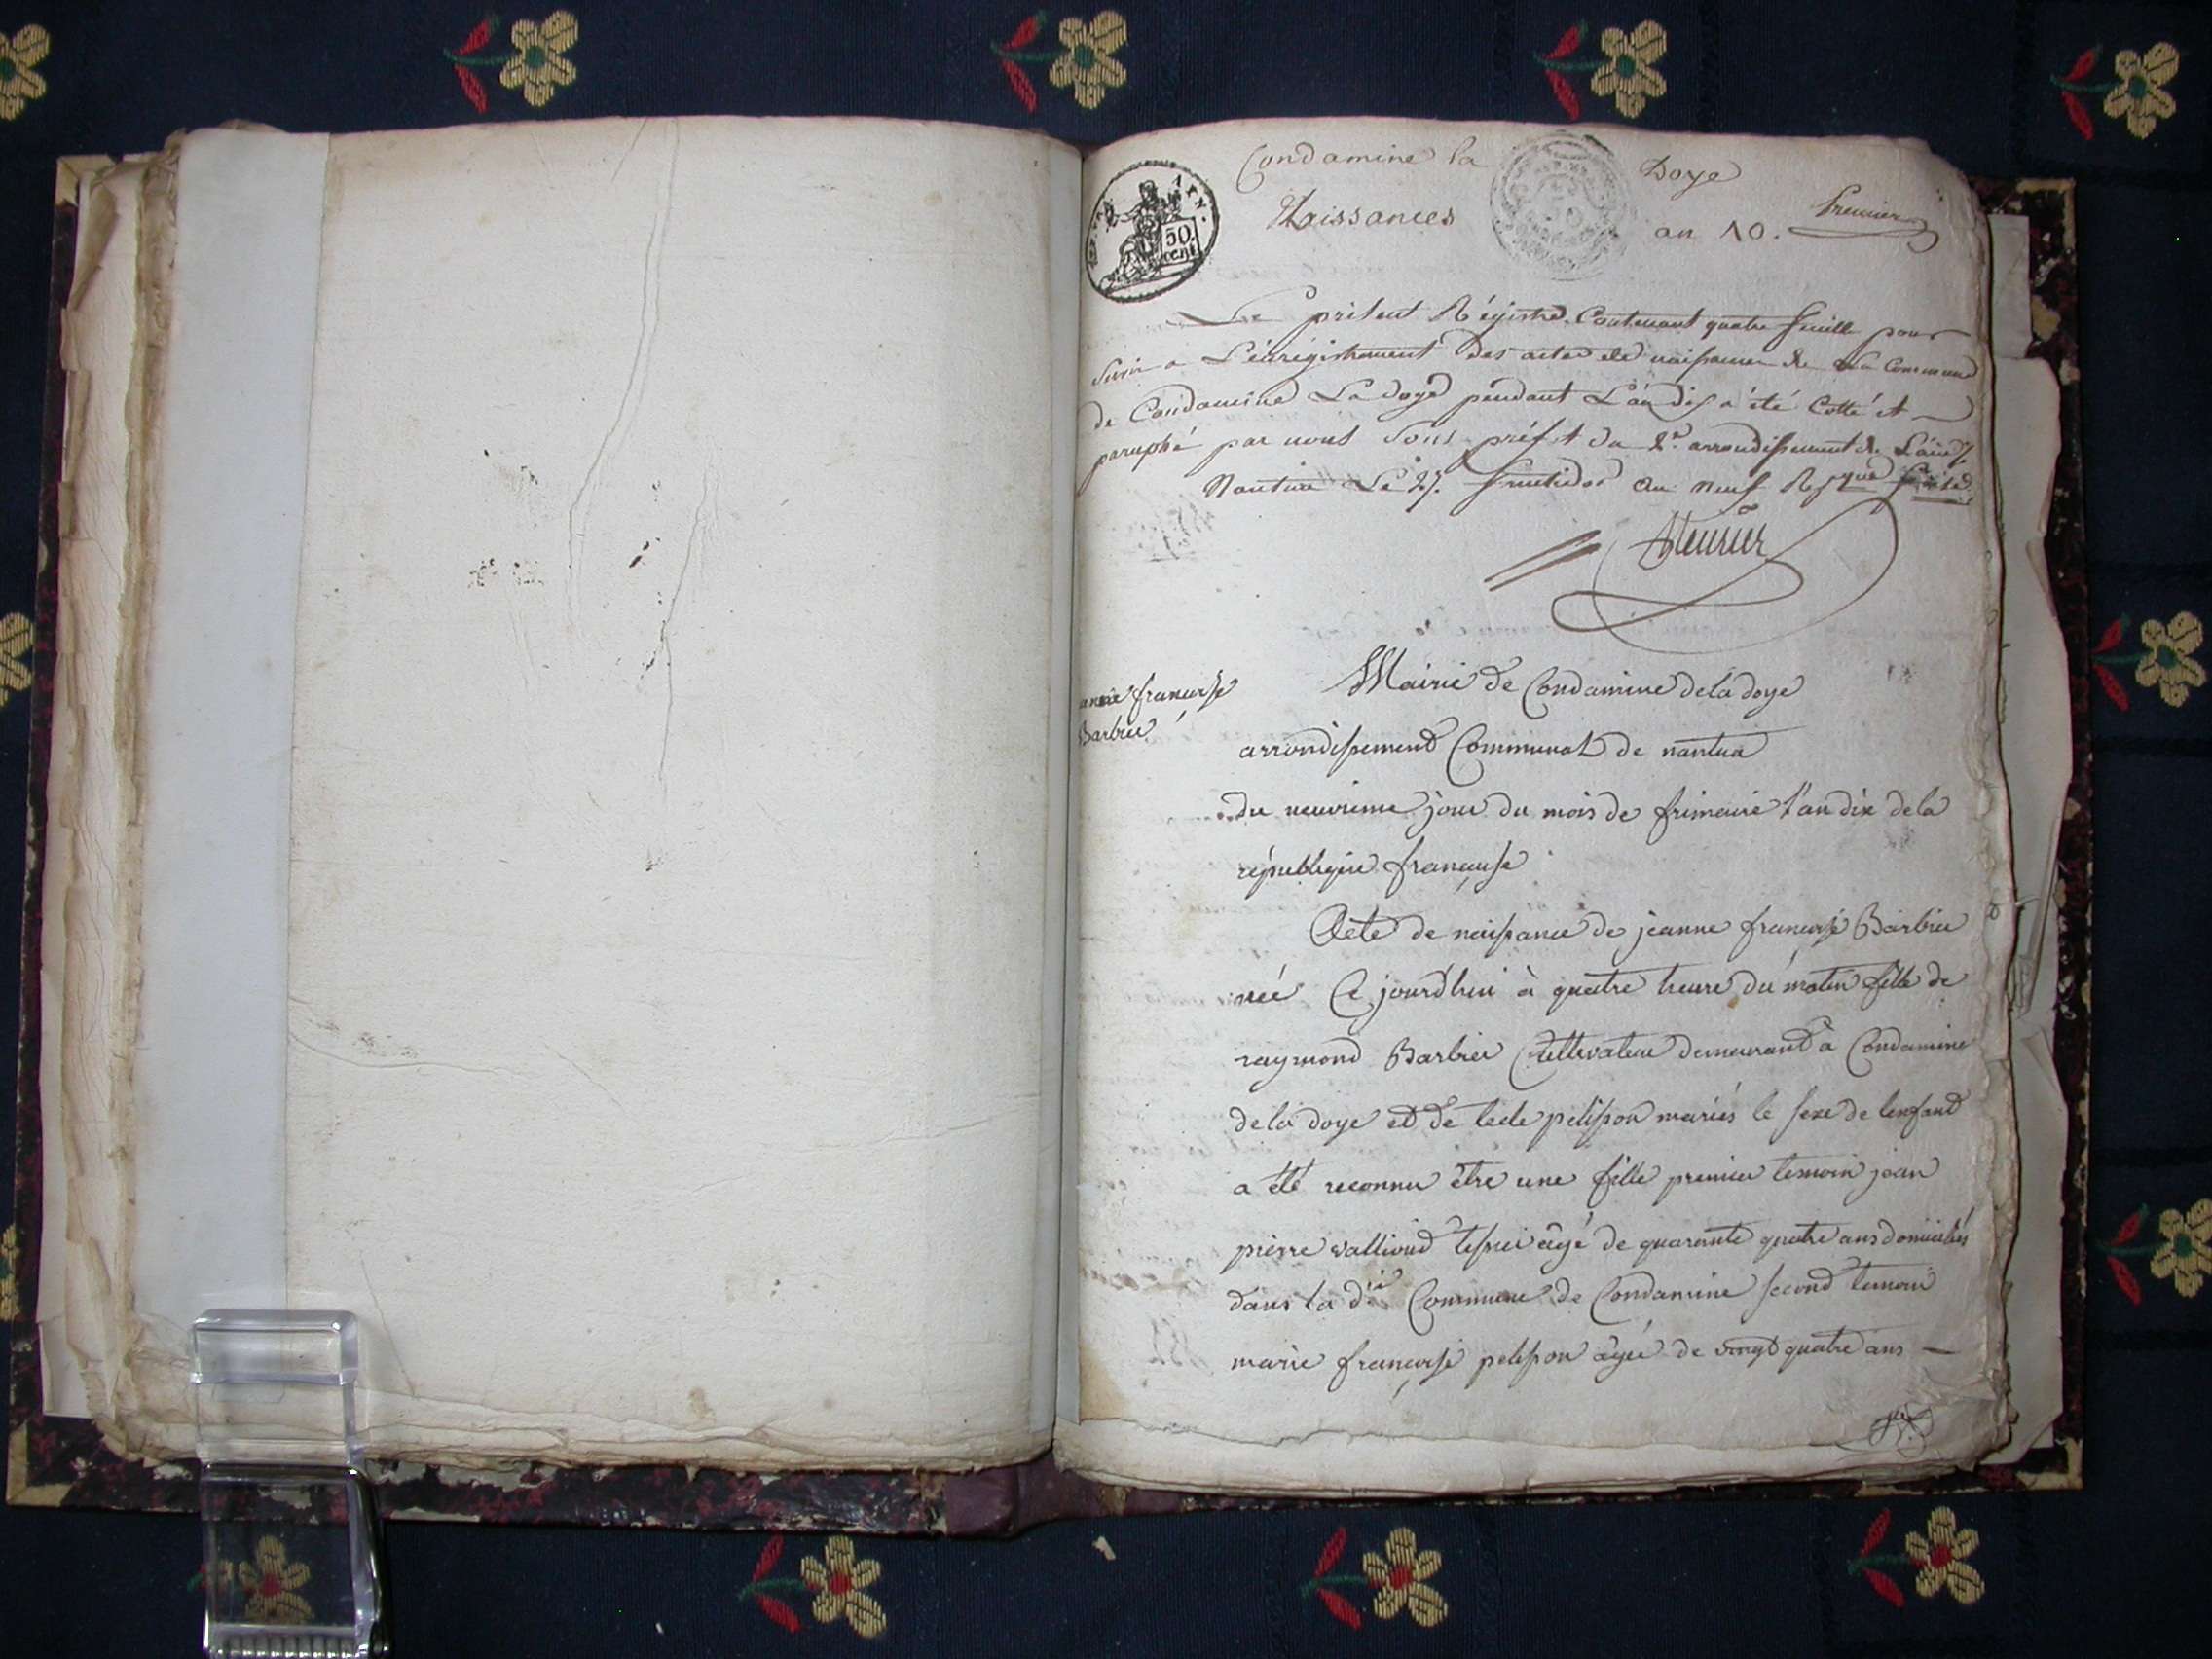 Condamine la Doye
Naissances an 10. premier
50
cent
Le présent Régistre Contenant quatre feuille pour
Servir a L'enrégistrement des actes de naissance de La Commune
de Condamine La doye pendant L'an dix a été Cotté et
paraphé par nous Sous préfet du 2e. arrondissement de L'ain
Nantua Le 27. fructidor an neuf
jeanne francoise
Barbier
Mairie de Condamine de la doye
arrondissement Communal de nantua
du neuvieme jour du mois de frimaire l'an dix de la
république française
Acte de naissance de jeanne francoise Barbier
née Ce jourd'hui à quatre heure du matin fille de
raymond Barbier Cultivateur demeurant à Condamine
de la doye et de pelisson mariés le sexe de lenfant
a été reconnu être une fille premier temoin jean
pierre vallioud âgé de quarante quatre ans domiciliés
dans la dite Commune de Condamine second temoin
marie françoise pelisson âgée de vingt quatre ans —